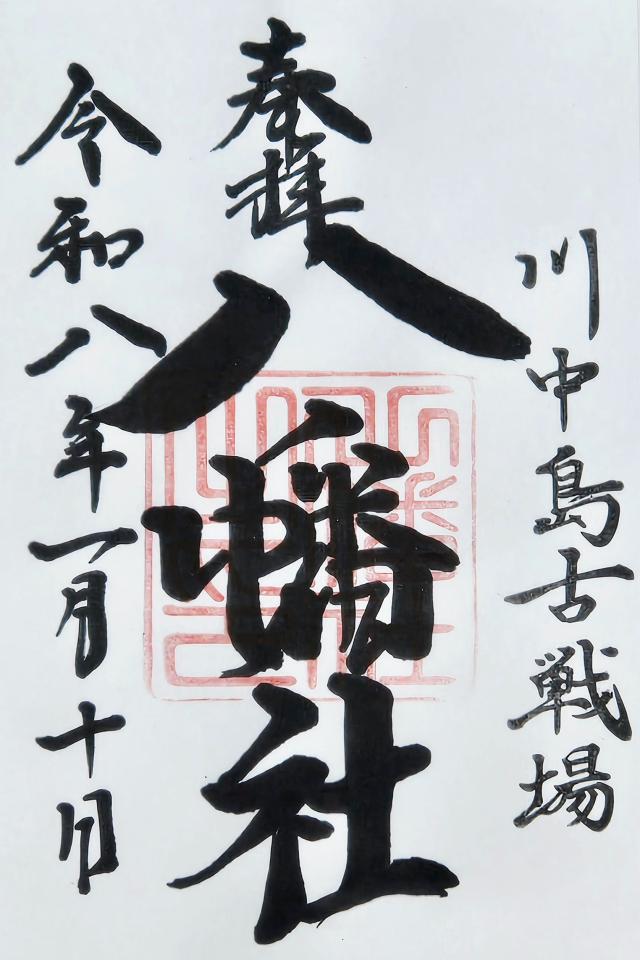 川中島古戦場
奉拝
八幡社
令和八年一月十日